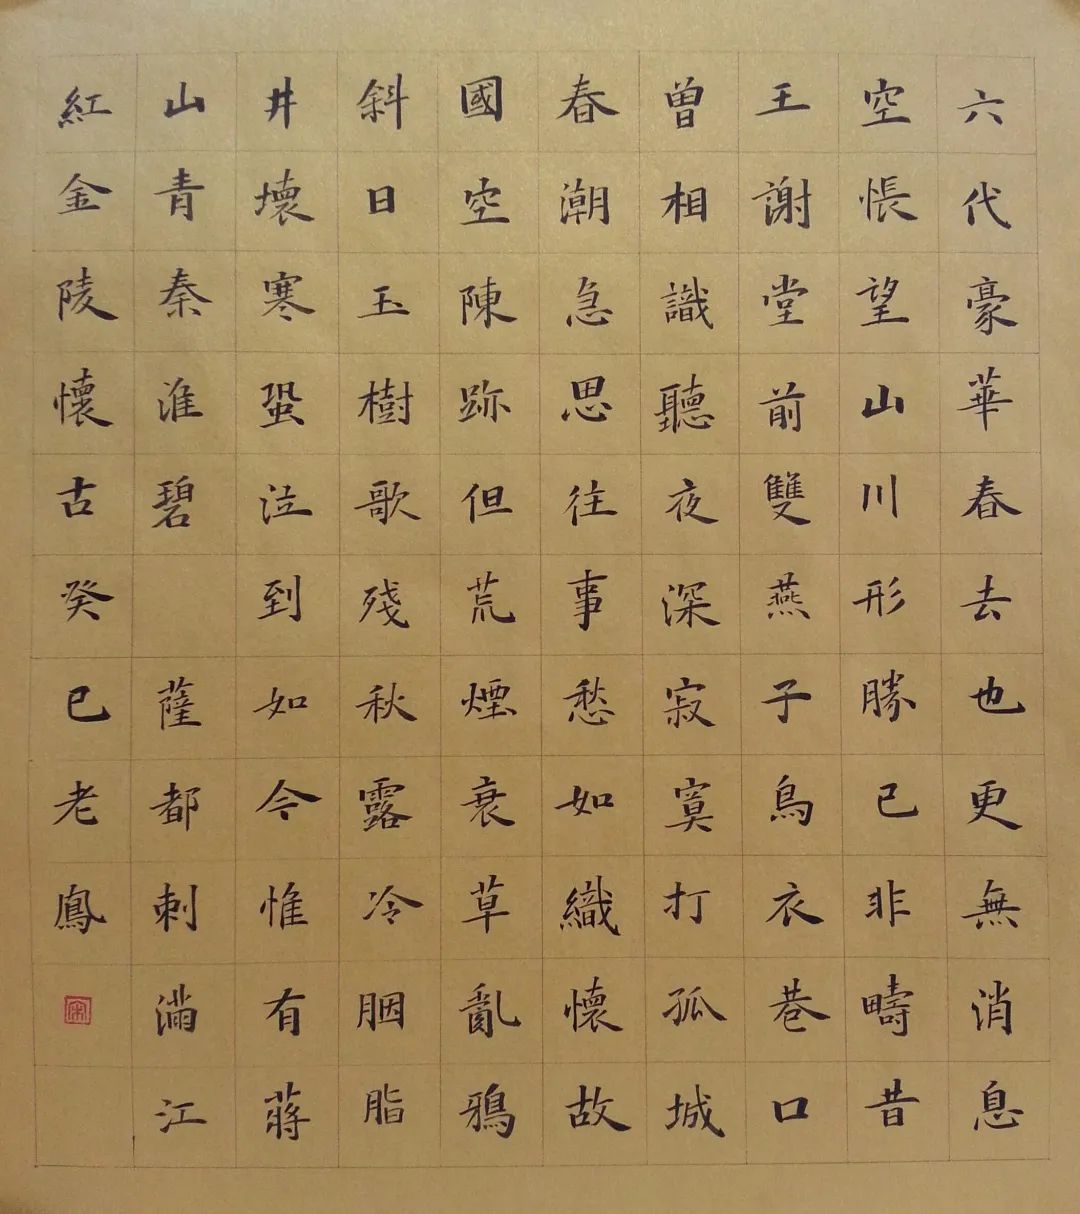 六代豪華春去也更無消息
空悵望山川形勝已非疇昔
王謝堂前雙燕子烏衣巷口
曾相識聽夜深寂寞打孤城
春潮急思往事愁如織懷故
國空陳跡但荒煙衰草亂鴉
斜日玉樹歌殘秋露冷胭脂
井壞寒螀泣到如今惟有蔣
山青秦淮碧 薩都剌滿江
紅金陵懷古癸巳老鳳
宋